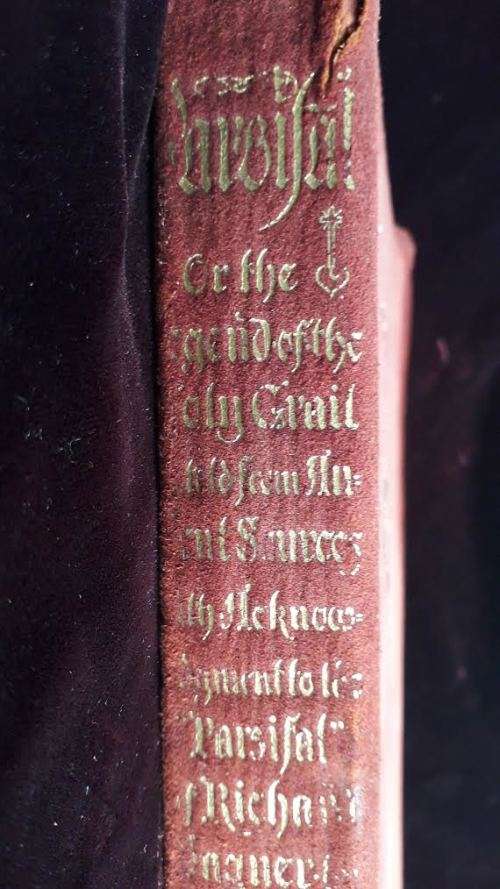 Parsifal
Or the
egend of the
oly Grail
told from An=
ent Sources
ith Acknow=
dgment to the
"Parsifal"
of Richard
Wagner